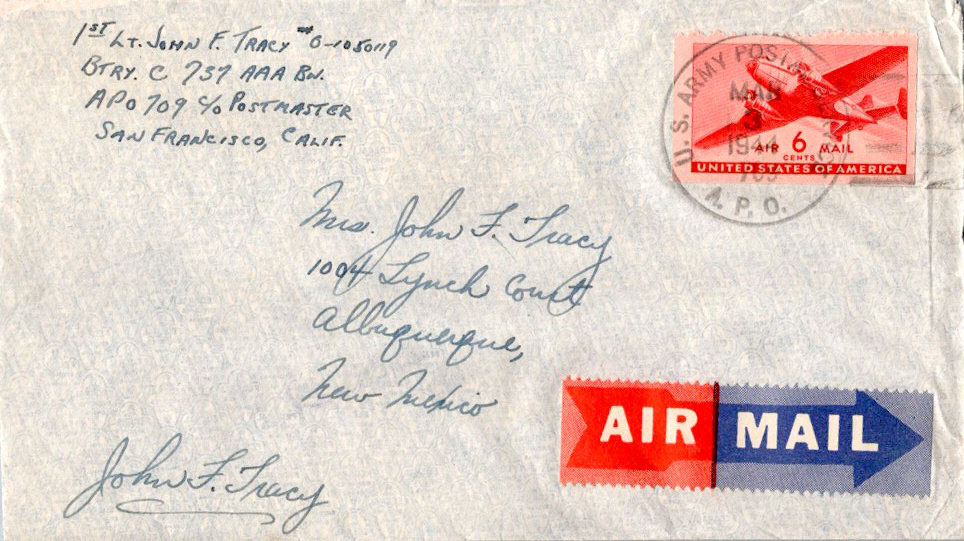 1ST LT. JOHN F. TRACY #O-1050119
BTRY. C 737 AAA BN.
APO 709 C/O POSTMASTER
SAN FRANCISCO, CALIF.
U.S. ARMY POSTAL
MAR
3
1944
A. P. O.
AIR 6 MAIL
CENTS
UNITED STATES OF AMERICA
Mrs. John F. Tracy
1004 Lynch Court
Albuquerque,
New Mexico
AIR MAIL
John F. Tracy